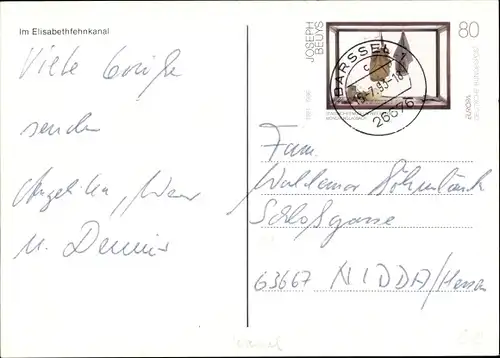 Im Elisabethfehnkanal
Viele Grüße
senden
Angelika,
u. Dennis
JOSEPH
BEUYS
80
EUROPA
DEUTSCHE BUNDESPOST
BARSSEL 1
26676
Fam.
Waldemar
Schloßgasse
63667 NIDDA/Hessen